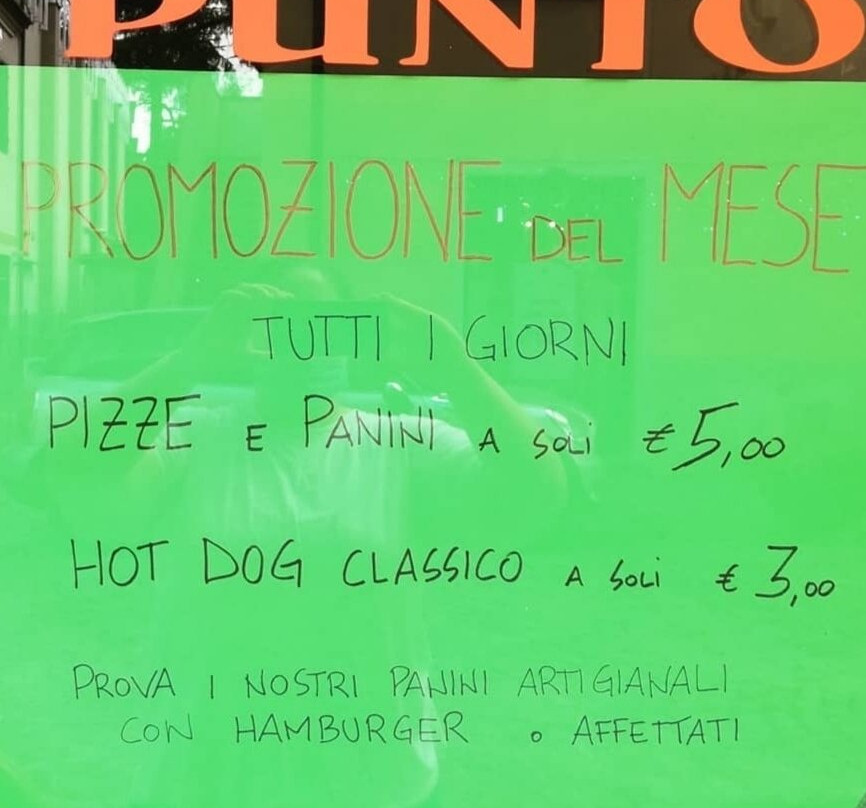 PUNTO
PROMOZIONE DEL MESE
TUTTI I GIORNI
PIZZE E PANINI A SOLI € 5,00
HOT DOG CLASSICO A SOLI € 3,00
PROVA I NOSTRI PANINI ARTIGIANALI
CON HAMBURGER O AFFETTATI